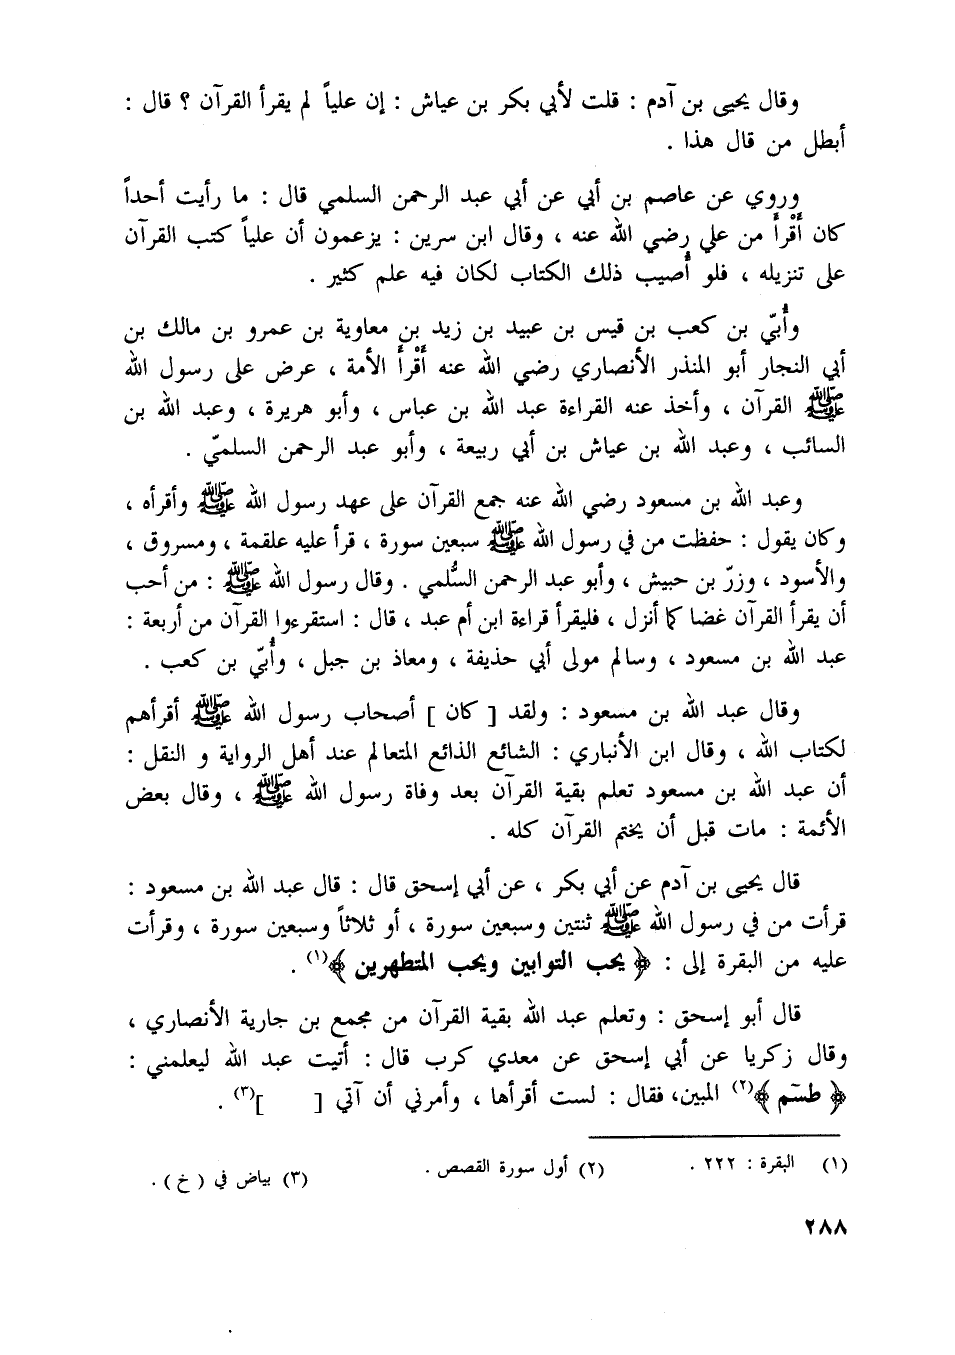 وقال يحيى بن آدم : قلت لأبي بكر بن عياش : إن علياً لم يقرأ القرآن ؟ قال :
أبطل من قال هذا .
وروي عن عاصم بن أبي عن أبي عبد الرحمن السلمي قال : ما رأيت أحداً
كان أَقْرأَ من علي رضي الله عنه ، وقال ابن سرين : يزعمون أن علياً كتب القرآن
على تنزيله ، فلو أُصيب ذلك الكتاب لكان فيه علم كثير .
وأُبيّ بن كعب بن قيس بن عبيد بن زيد بن معاوية بن عمرو بن مالك بن
أبي النجار أبو المنذر الأنصاري رضي الله عنه أَقْرأَ الأمة ، عرض على رسول الله
ﷺ القرآن ، وأخذ عنه القراءة عبد الله بن عباس ، وأبو هريرة ، وعبد الله بن
السائب ، وعبد الله بن عياش بن أبي ربيعة ، وأبو عبد الرحمن السلميّ .
وعبد الله بن مسعود رضي الله عنه جمع القرآن على عهد رسول الله ﷺ وأقرأه ،
وكان يقول : حفظت من في رسول الله ﷺ سبعين سورة ، قرأ عليه علقمة ، ومسروق ،
والأسود ، وزرّ بن حبيش ، وأبو عبد الرحمن السُّلمي . وقال رسول الله ﷺ : من أحب
أن يقرأ القرآن غضا كما أنزل ، فليقرأ قراءة ابن أم عبد ، قال : استقرءوا القرآن من أربعة :
عبد الله بن مسعود ، وسالم مولى أبي حذيفة ، ومعاذ بن جبل ، وأُبيّ بن كعب .
وقال عبد الله بن مسعود : ولقد [ كان ] أصحاب رسول الله ﷺ أقرأهم
لكتاب الله ، وقال ابن الأنباري : الشائع الذائع المتعالم عند أهل الرواية و النقل :
أن عبد الله بن مسعود تعلم بقية القرآن بعد وفاة رسول الله ﷺ ، وقال بعض
الأئمة : مات قبل أن يختم القرآن كله .
قال يحيى بن آدم عن أبي بكر ، عن أبي إسحق قال : قال عبد الله بن مسعود :
قرأت من في رسول الله ﷺ ثنتين وسبعين سورة ، أو ثلاثاً وسبعين سورة ، وقرأت
عليه من البقرة إلى : ﴿ يحب التوابين ويحب المتطهرين ﴾(١) .
قال أبو إسحق : وتعلم عبد الله بقية القرآن من مجمع بن جارية الأنصاري ،
وقال زكريا عن أبي إسحق عن معدي كرب قال : أتيت عبد الله ليعلمني :
﴿ طسٓم ﴾(٢) المبين، فقال : لست أقرأها ، وأمرني أن آتي [ ](٣) .
(١) البقرة : ٢٢٢ . (٢) أول سورة القصص . (٣) بياض في ( خ ) .
٢٨٨